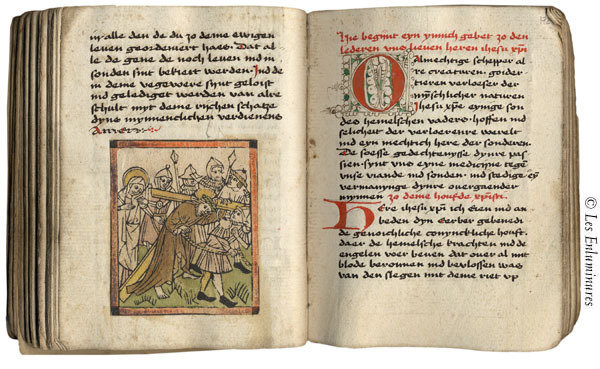 in alle den de du zo deme ewigen
leuen geordeniert haes. Dat al
le de gene de noch leuen ind in
sonden sint bekiert werden. Ind de
in deme vegevvere sijnt geloist
ind geledigt werden van alre
schult myt deme rijchen schatze
dyns mynnenclichen verdienens
Amen
Hie begint eyn ynnich gebet zo den
lederen vns lieuen heren ihesu xpi
O Almechtige schepper al
re creaturen. goider
tieren verloeser der
mynschlicher naturen
Ihesu xpe eynige son
des hemelschen vaders. hoffen ind
selicheit der verloerenre werelt
ind eyn mechtich here der sonderen.
De soesse gedechtenysse dynre pas
sien synt vns eyne medicine tege
vnse viande ind sonden. ind stedige
vermanynge dynre ouergaender
mynnen zo deme houfde xpisti
Here ihesu xpi ich eren ind an
beden dyn eerber gebenedi
de genoichliche conyncliche houft.
daer de hemelsche brachten ind de
engelen voer beuen dat ouer al mit
blode berounen ind bevlossen was
van den slegen mit deme riet vp
© Les Enluminures